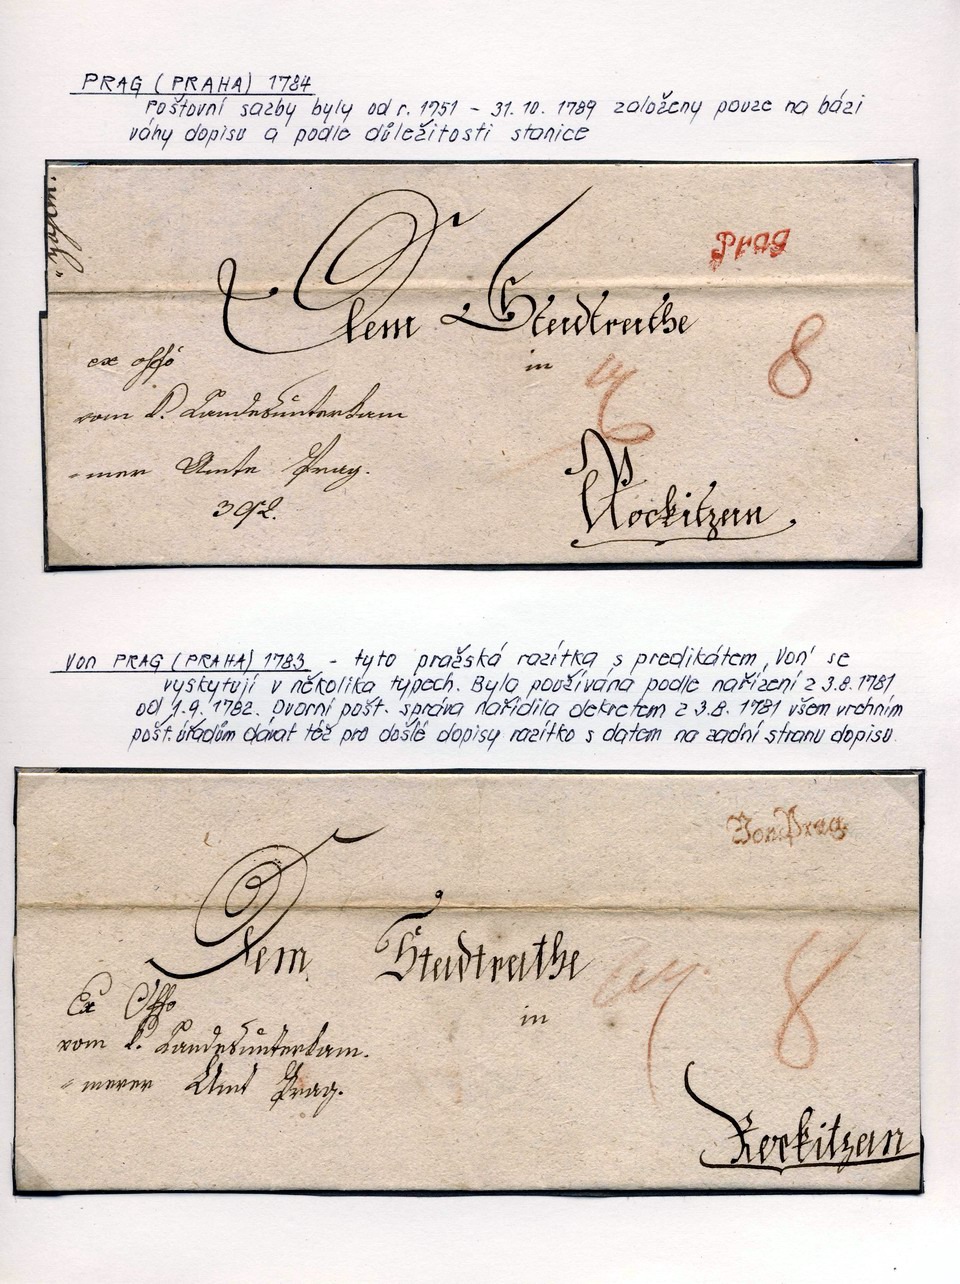 PRAG (PRAHA) 1784
Poštovní sazby byly od r. 1751 – 31. 10. 1789 založeny pouze na bázi
váhy dopisu a podle důležitosti stanice
Prag
Dem Stadtrathe
8
ex offó
in
vom K. Landesünterkam
-mer Amte Prag.
Rockitzan
Von PRAG (PRAHA) 1783 – tyto pražská razítka s predikátem ‚Von‘ se
vyskytují v několika typech. Byla používána podle nařízení z 3.8.1781
od 1.9. 1782. Dvorní pošt. správa nařídila dekretem z 3.8. 1781 všem vrchním
pošt. úřadům dávat též pro došlé dopisy razítko s datem na zadní stranu dopisu.
Von Prag
Dem Stadtrathe
8
Ex Offo
in
vom K. Landesünterkam.
-merer Amt Prag.
Rockitzan